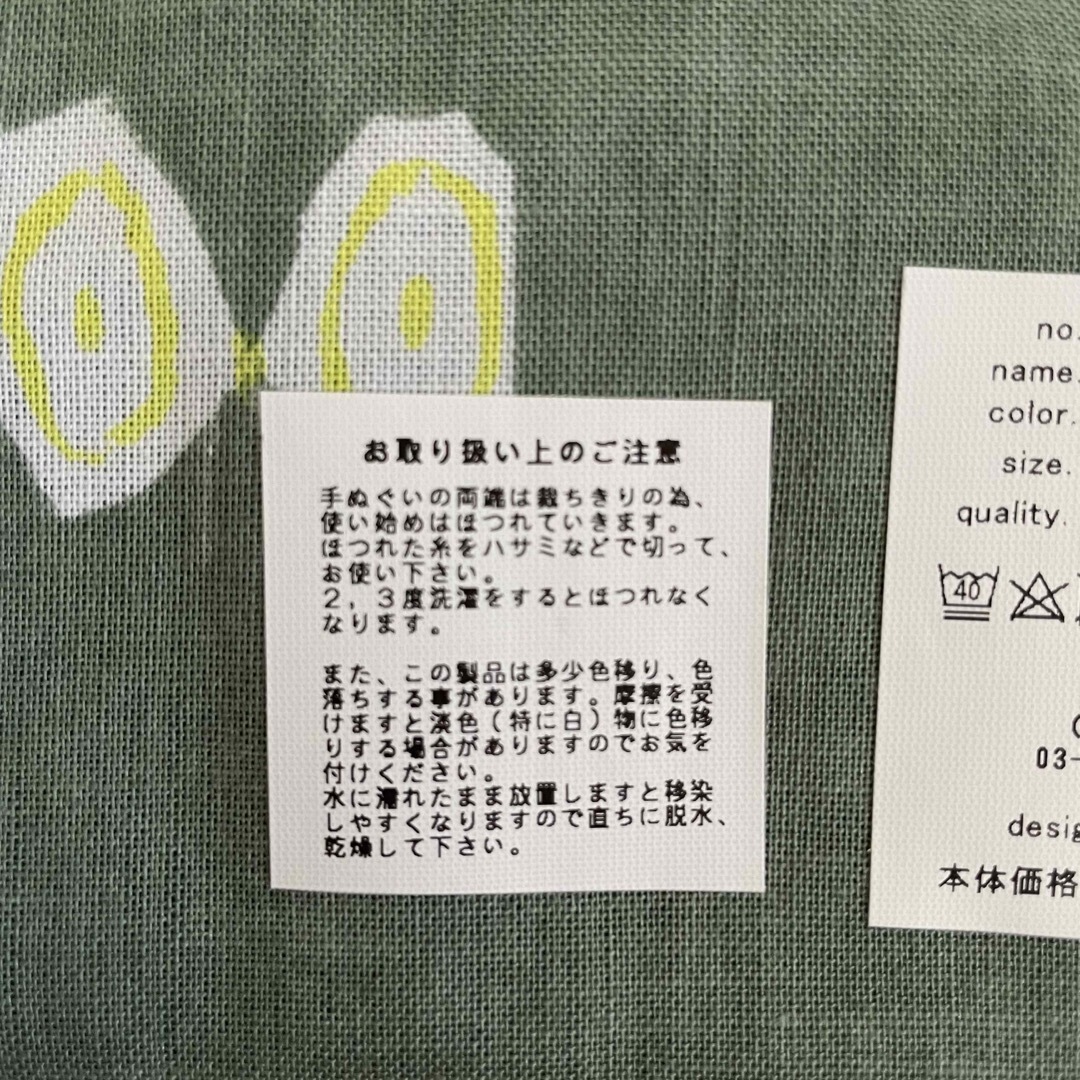 お取り扱い上のご注意
手ぬぐいの両端は裁ちきりの為、
使い始めはほつれていきます。
ほつれた糸をハサミなどで切って、
お使い下さい。
2，3度洗濯をするとほつれなく
なります。
また、この製品は多少色移り、色
落ちする事があります。摩擦を受
けますと淡色（特に白）物に色移
りする場合がありますのでお気を
付けください。
水に濡れたまま放置しますと移染
しやすくなりますので直ちに脱水、
乾燥して下さい。
no.
name.
color.
size.
quality.
40
03-
desig
本体価格